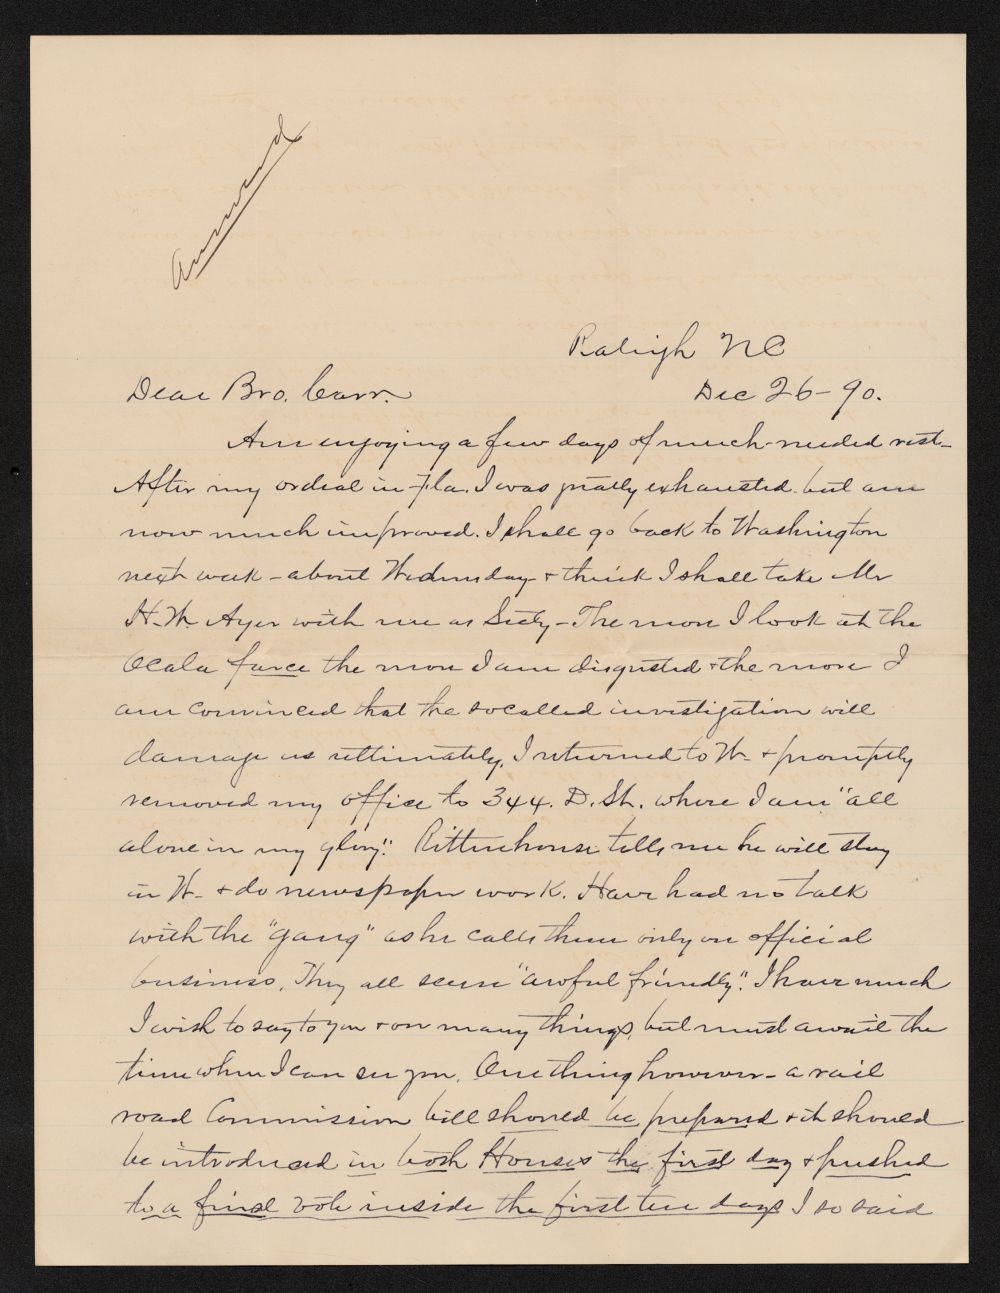 Answered
Raleigh NC
Dear Bro. Carr. Dec 26-90.
Am enjoying a few days of much-needed rest-
After my ordeal in Fla. I was greatly exhausted. but am
now much improved. I shall go back to Washington
next week - about Wednesday & think I shall take Mr
H. W. Ayer with me as Secty - The more I look at the
Ocala farce the more I am disgusted & the more I
am convinced that the socalled investigation will
damage us ultimately. I returned to W- & promptly
removed my office to 344. D. St. where I am "all
alone in my glory". Rittenhouse tells me he will stay
in W- & do newspaper work. Have had no talk
with the "gang" as he calls them only on official
business. They all seem "awful friendly". I have much
I wish to say to you & on many things, but must await the
time when I can see you. One thing however - a rail
road Commission bill should be prepared & it should
be introduced in both Houses the first day & pushed
to a final vote inside the first ten days I so said